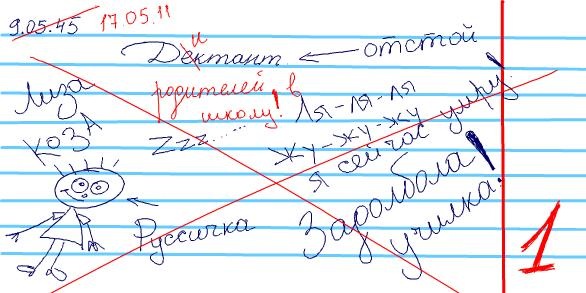 9.05.45 17.05.11
Дектант и ← отстой
родителей в
школу!
Лиза
КОЗА
Zzz......
Ля-ля-ля
Жу-жу-жу
я сейчас умру!
Руссичка
Задолбала
училка!
1